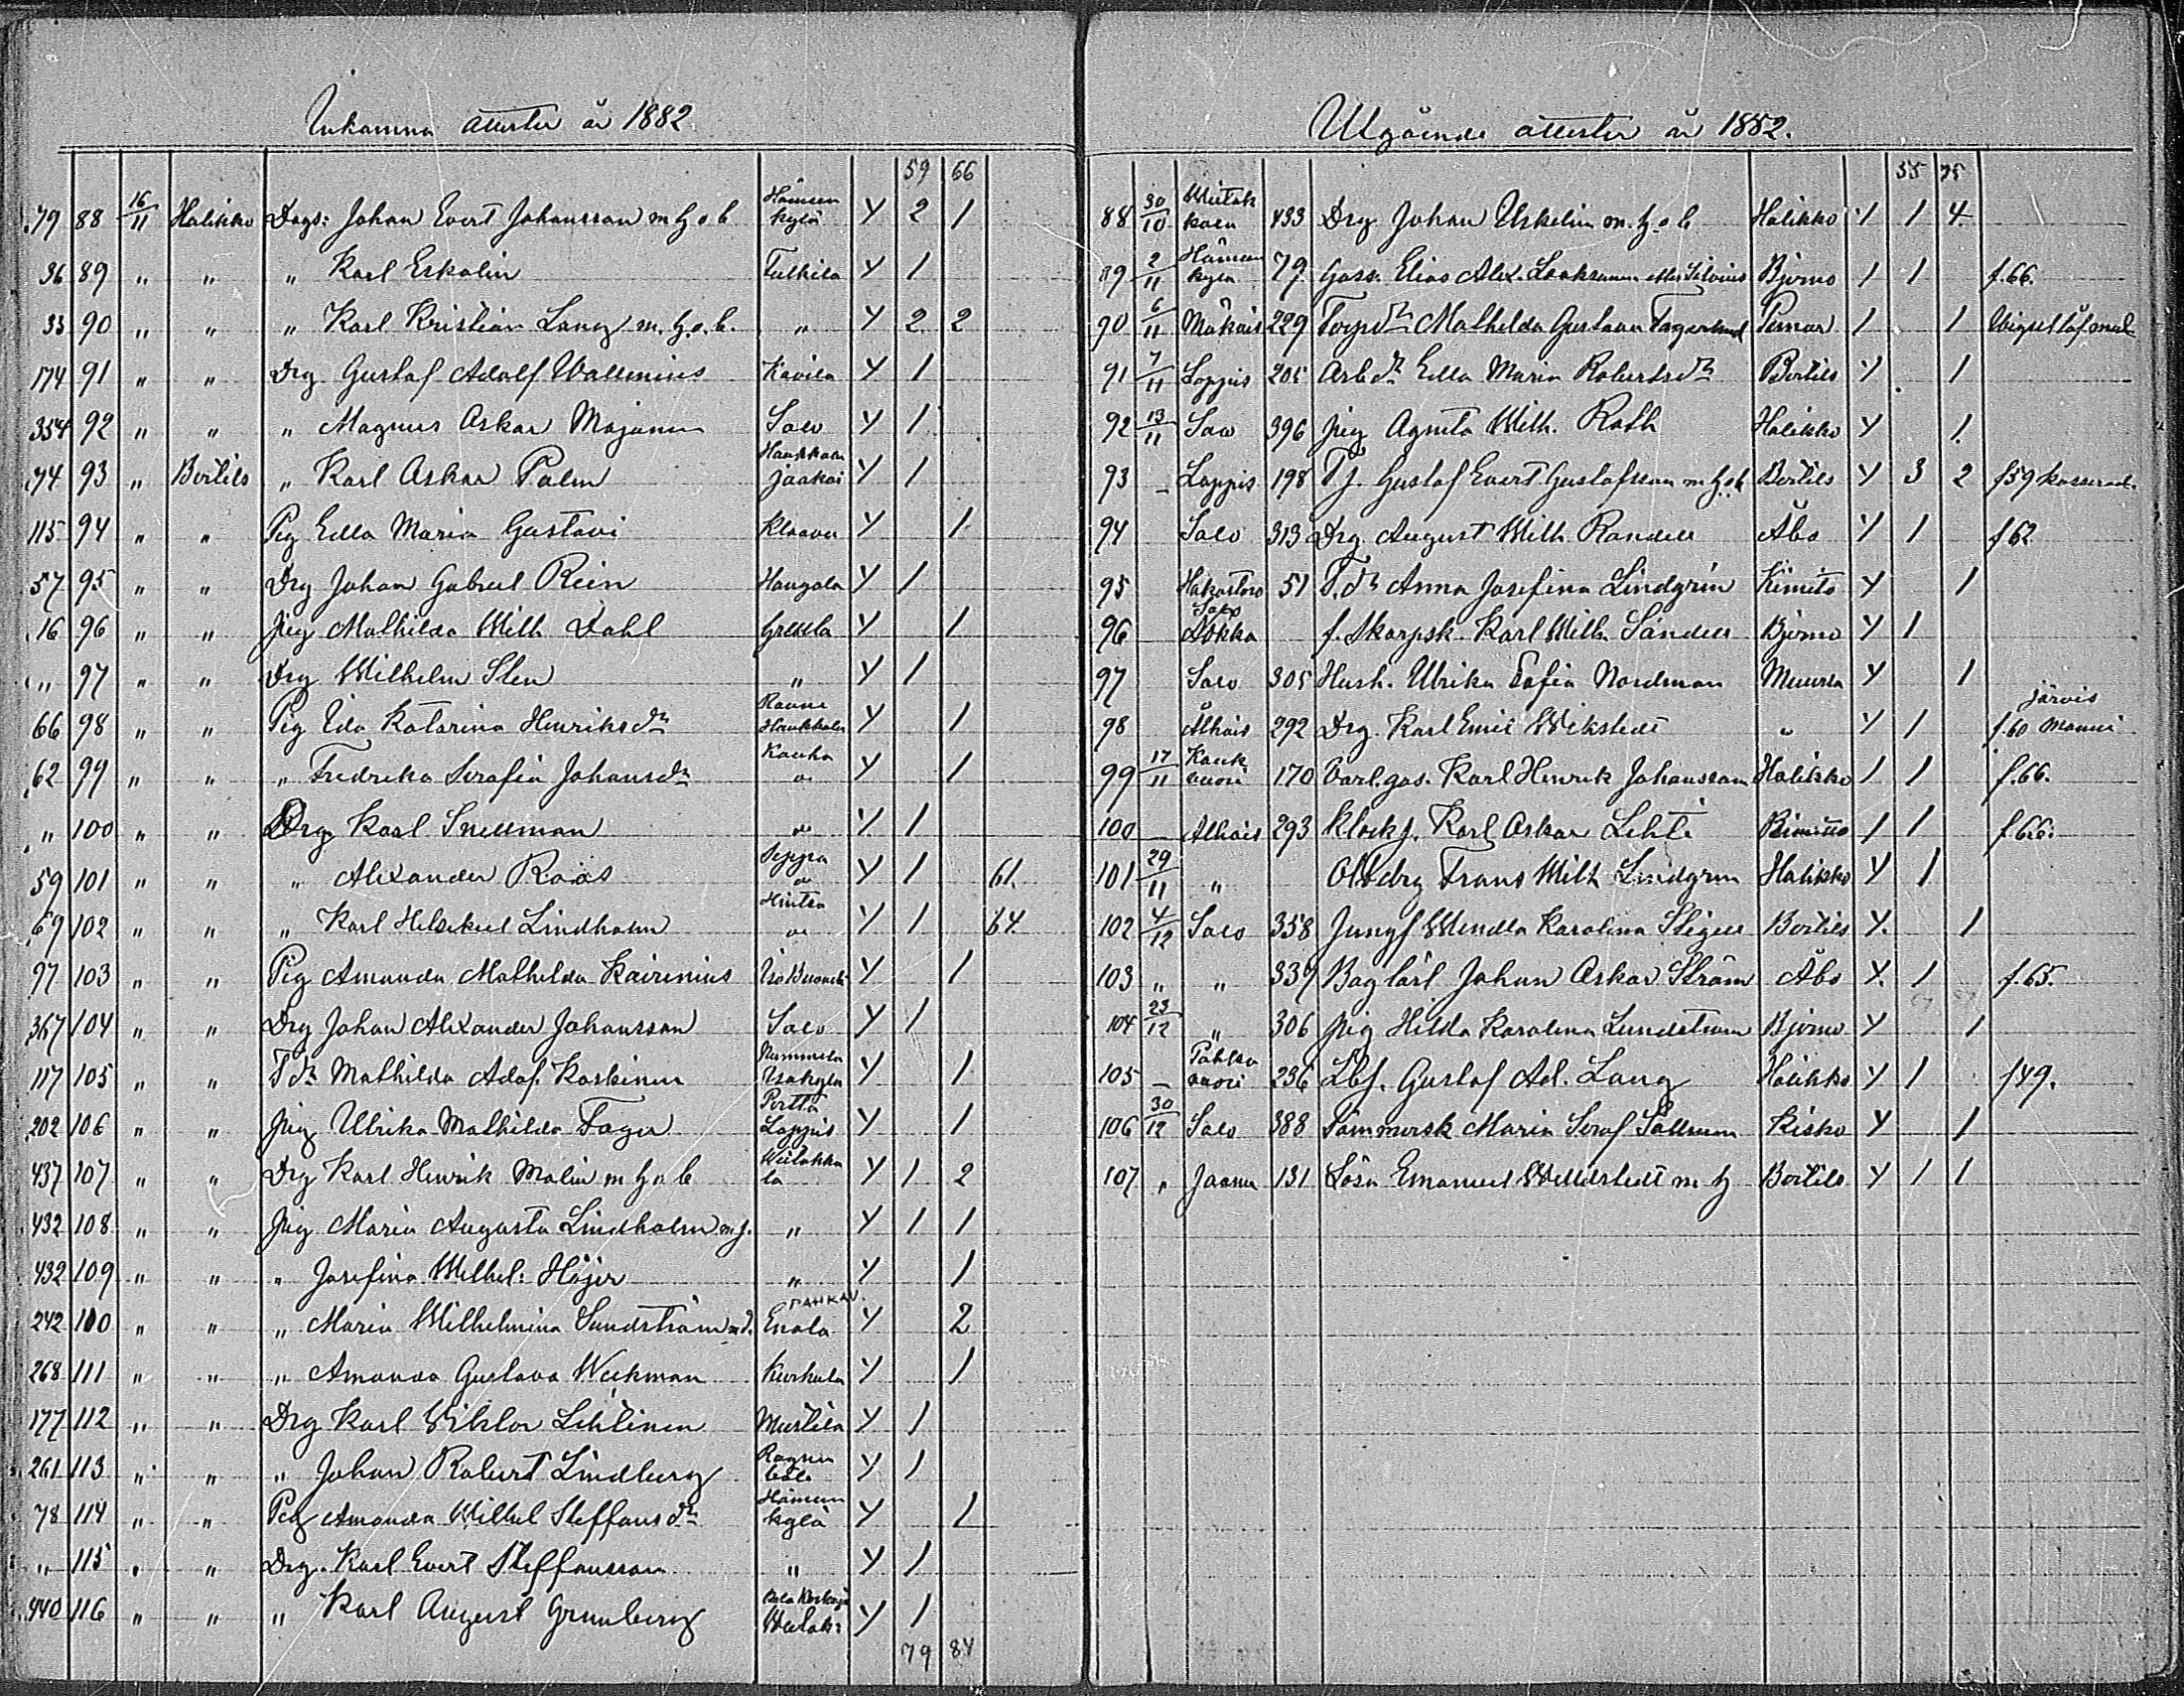 Inkomna attester år 1882.
59 66
79 88 16/11 Halikko Drgs: Johan Evert Johansson m. h. o. b. Hämeenkylä Y 2 1
36 89 " " " Karl Eskolin Tulkila Y 1
33 90 " " " Karl Kristian Lang m. h. o. b. " Y 2 2
174 91 " " Drg Gustaf Adolf Wallenius Kavila Y 1
354 92 " " " Magnus Oskar Majanen Salo Y 1
74 93 " Bertils " Karl Oskar Palm Haukkala Jaakoi Y 1
115 94 " " Pig Edla Maria Gustavi Klaavu Y 1
57 95 " " Drg Johan Gabriel Rein Hangola Y 1
16 96 " " Pig Mathilda Wilh. Dahl Greggla Y 1
" 97 " " Drg Wilhelm Sten " Y 1
66 98 " " Pig Ida Katarina Henriksdr Haukkala Y 1
62 99 " " " Fredrika Serafia Johansdr Kauha Y 1
" 100 " " Drg Karl Snellman Y 1
59 101 " " " Alexander Roos Seppä Y 1 61.
69 102 " " " Karl Heleskiel Lindholm Hintsa Y 1 64
97 103 " " Pig Amanda Mathilda Kairenius Y 1
367 104 " " Drg Johan Alexander Johansson Salo Y 1
117 105 " " T.dr Mathilda Adof. Koskinen Nummela Isokylä Y 1
202 106 " " Pig Ulrika Mathilda Fager Perttä Loppis Y 1
437 107 " " Drg Karl Henrik Malin m h o b Wiitakkala Y 1 2
432 108 " " Pig Maria Augusta Lindholm m. g. " Y 1 1
432 109 " " " Josefina Wilhel. Höjer " Y 1
242 110 " " " Maria Wilhelmina Sundström m d. PAHKAV. Enola Y 2
268 111 " " " Amanda Gustava Weckman Kurkela Y 1
177 112 " " Drg Karl Wiktor Lehtinen Mustila Y 1
261 113 " " " Johan Robert Lindberg Ragnböle Y 1
78 114 " " Pig Amanda Wilhel Steffansdr Hämeenkylä Y 1
" 115 " " Drg. Karl Evert Steffansson " Y 1
440 116 " " " Karl August Grunberg Y 1
79 84
Utgående attester år 1882.
35 75
88 30/10 433 Drg Johan Uskelin m. h. o b Halikko 1 1 4
89 2/11 Hämeenkylä 79 Goss. Elias Alex. Laaksonen eller Silvius Bjerno 1 1 f. 66.
90 6/11 Mökäis 229 Torpdr Mathilda Gustava Fagerlund Pemar 1 1
91 7/11 Loppis 205 Arb.dr Edla Maria Robertsdr Bertils Y 1
92 13/11 Salo 396 Pig Agneta Wilh. Roth Halikko Y 1
93 – Loppis 198 Tj. Gustaf Evert Gustafsson m h o b Bertils Y 3 2 f 59 kasserad.
94 Salo 313 Drg August Wilh Randell Åbo Y 1 f 62
95 Hakostaro 51 T. dr Anna Josefina Lindgrén Kimito Y 1
96 f. Skarpsk. Karl Wilh. Sandell Bjerno Y 1
97 Salo 305 Hush. Ulrika Sofia Nordman Muurla Y 1
98 Alhais 292 Drg. Karl Emil Wikstedt " Y 1 f. 60 Järvis
99 17/11 Kaukvuori 170 Varl. gos. Karl Henrik Johansson Halikko 1 1 f. 66.
100 – Alhais 293 Klockf. Karl Oskar Lehti Kimitto 1 1 f. 66.
101 29/11 " Obl. drg Frans Wilh. Lindgren Halikko Y 1
102 4/12 Salo 358 Jungf Wendla Karolina Stigell Bertils Y. 1
103 " " 339 Bag lärl Johan Oskar Ström Åbo Y. 1 f. 65.
104 23/12 " 306 Pig Hilda Karolina Lundström Bjerno Y 1
105 – Pahkavuori 236 Lbf. Gustaf Ad. Lang Halikko Y 1 f 49.
106 30/12 Salo 388 Maria Seraf Kisko Y 1
107 " Joensu 131 Lösa Emanuel Wellstedt m h Bertils Y 1 1